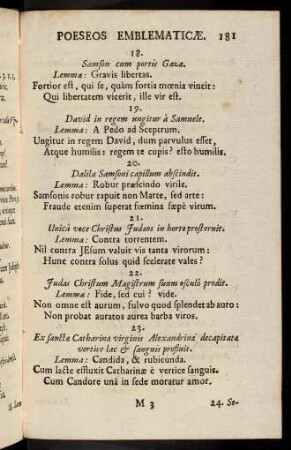 POESEOS EMBLEMATICÆ. 181
18.
Samson cum portis Gazæ.
Lemma: Gravis libertas.
Fortior est, qui se, quàm fortia mœnia vincit:
Qui libertatem vicerit, ille vir est.
19.
David in regem ungitur à Samuele.
Lemma: A Pedo ad Sceptrum.
Ungitur in regem David, dum parvulus esset,
Atque humilis: regem te cupis? esto humilis.
20.
Dalila Samsoni capillum abscindit.
Lemma: Robur præscindo virile.
Samsonis robur rapuit non Marte, sed arte:
Fraude etenim superat fœmina sæpè virum.
21.
Unicâ voce Christus Judæos in horto prosternit.
Lemma: Contra torrentem.
Nil contra JEsum valuit vis tanta virorum:
Hunc contra solus quid scelerate vales?
22.
Judas Christum Magistrum suum osculô prodit.
Lemma: Fide, sed cui? vide.
Non omne est aurum, fulvo quod splendet ab auro:
Non probat auratos aurea barba viros.
23.
Ex sanctæ Catharinæ virginis Alexandrinæ decapitatæ
vertice lac & sanguis profluit.
Lemma: Candida, & rubicunda.
Cum lacte effluxit Catharinæ è vertice sanguis.
Cum Candore unâ in sede moratur amor.
M 3 24. Se-